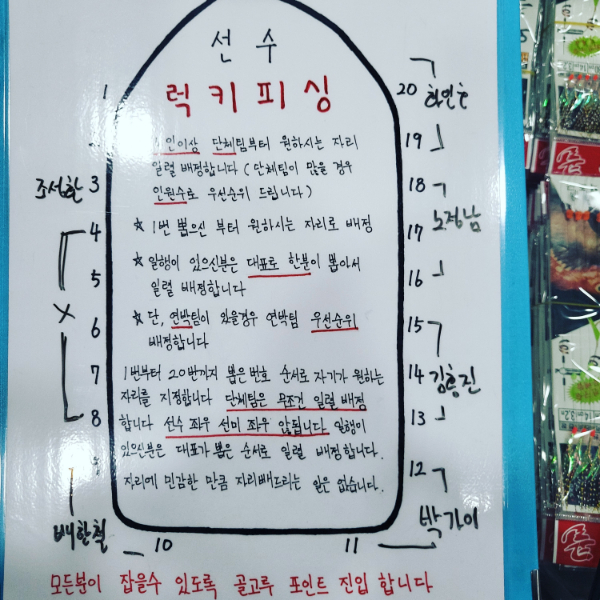 선수
럭키피싱
인이상 단체팀부터 원하시는 자리
일렬 배정합니다 (단체팀이 많을 경우
인원수로 우선순위 드립니다)
☆ 1번 뽑으신 부터 원하시는 자리로 배정
☆ 일행이 있으신분은 대표로 한분이 뽑아서
일렬 배정합니다
☆ 단, 연박팀이 있을경우 연박팀 우선순위
배정합니다
1번부터 20번까지 뽑은번호 순서로 자기가 원하는
자리를 지정합니다 단체팀은 무조건 일렬배정
합니다 선수 좌우 선미 좌우 않됩니다 일행이
있으신분은 대표가 뽑은 순서로 일렬 배정합니다.
자리에 민감한 만큼 자리빼드리는 일은 없습니다.
1
조성환 3
4
5
X
6
7
8
배한철
10
20
19
18
노정남
17
16
15
14 김흥진
13
12
박가이
11
모든분이 잡을수 있도록 골고루 포인트 진입 합니다